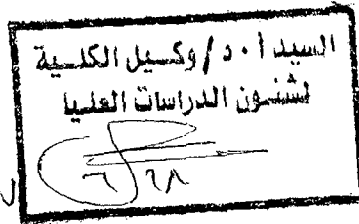 السيد أ.د/ وكيل الكلية
لشئون الدراسات العليا
٦/٢٨